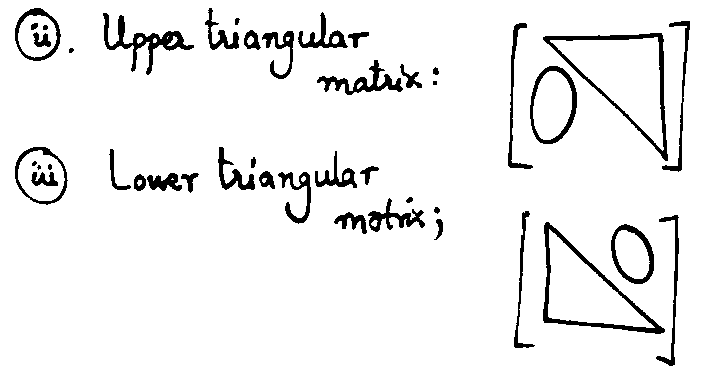 ii. Upper triangular
matrix:
iii Lower triangular
matrix;